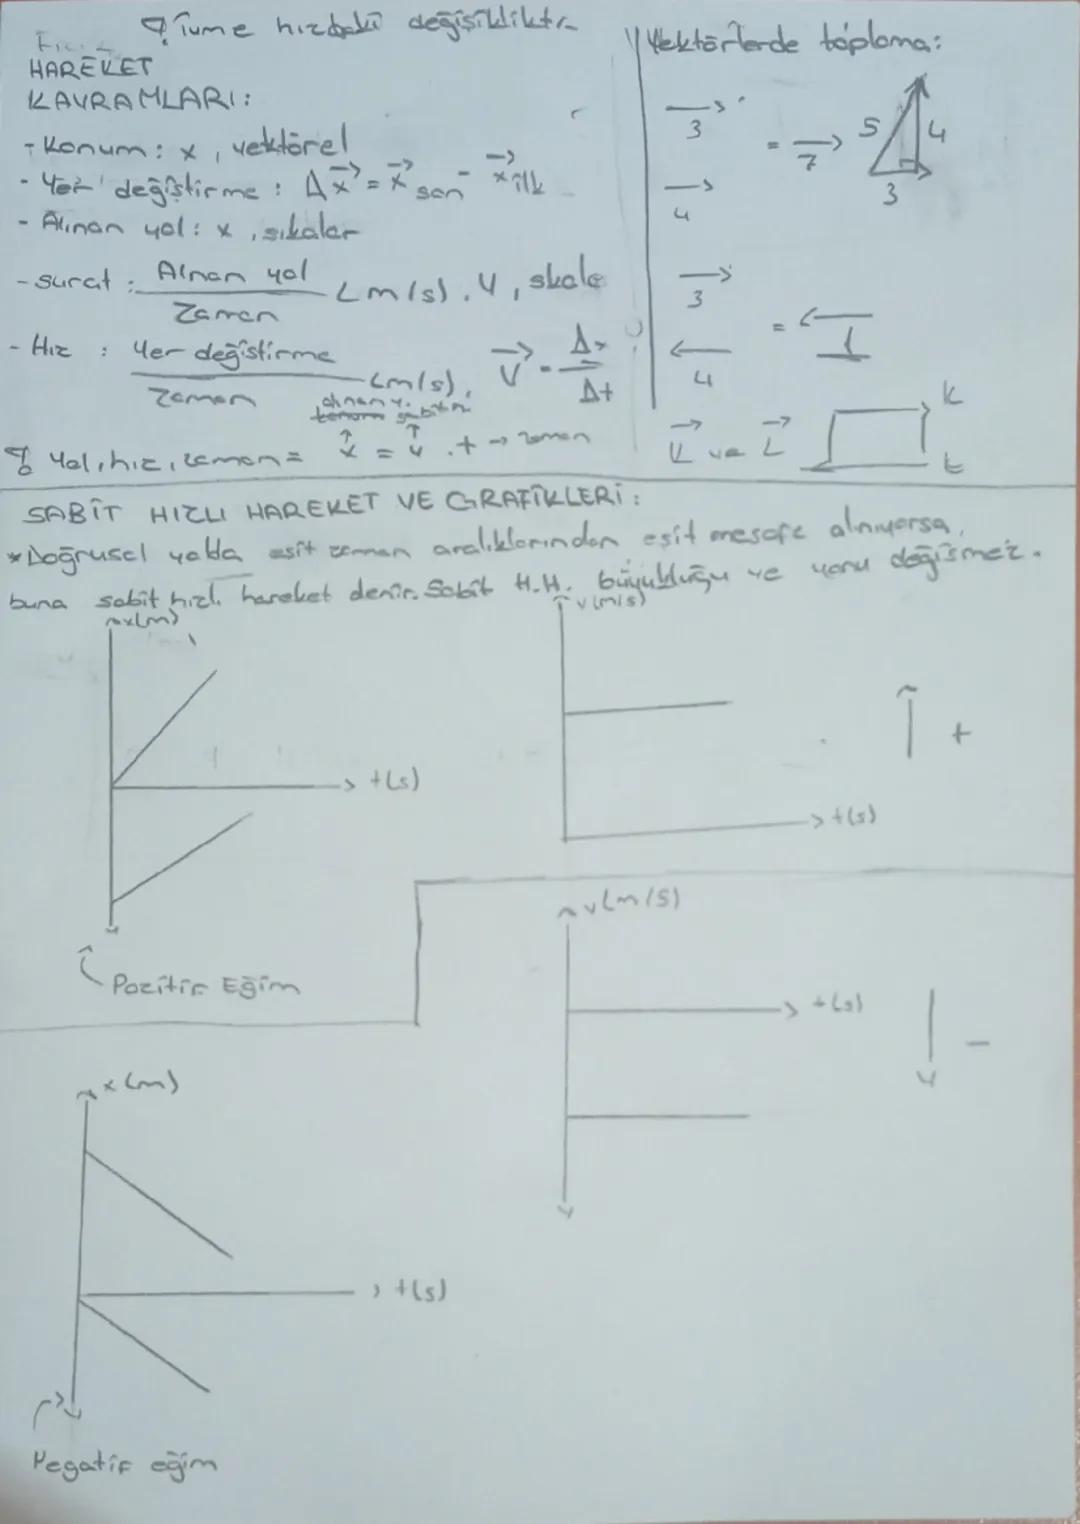 İvme hızdaki değişikliktir
HAREKET
KAVRAMLARI:
- Konum: x, vektörel
- Yer değiştirme: Δx = x son - x ilk
- Alınan yol: x, sıkaler
- surat: Alınan yol / Zaman (m/s). v, skale
- Hız: Yer değiştirme / Zaman (m/s), v = Δx / Δt
Yol, hız, zaman = x = v . t → zaman
Vektörlerde toplama:
3
4
= 7
5
4
3
3
4
= 1
K ve L
K
L
SABİT HIZLI HAREKET VE GRAFİKLERİ:
* Doğrusal yolda eşit zaman aralıklarından eşit mesafe alınıyorsa,
buna sabit hızlı hareket denir. Sabit H.H. büyüklüğü ve yönü değişmez.
x(m)
t(s)
Pozitif Eğim
v(m/s)
t(s)
+
v(m/s)
t(s)
-
x(m)
t(s)
Negatif eğim